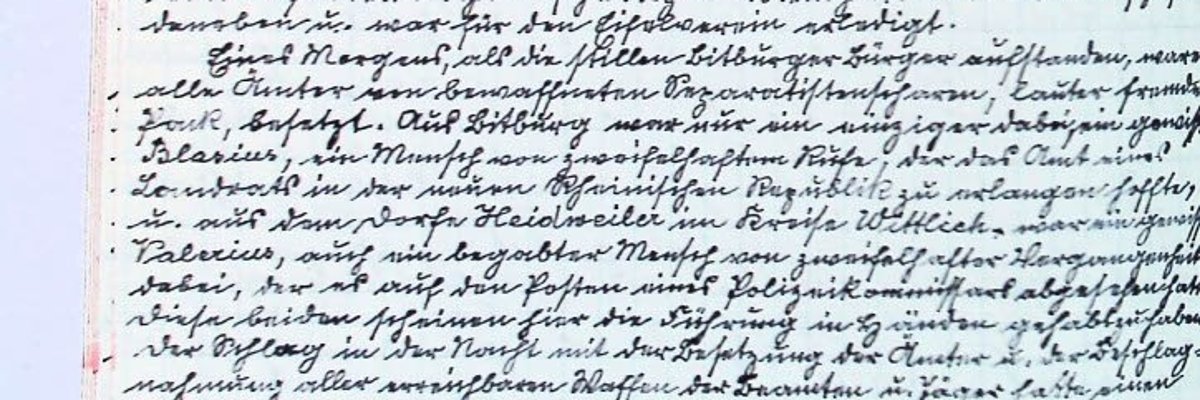 daneben u. war für den Eifelverein erledigt.
Eines Morgens, als die stillen Bitburger Bürger aufstanden, waren
alle Ämter von bewaffneten Separatistenscharen, lauter fremdes
Pack, besetzt. Aus Bitburg war nur ein einziger dabei, ein gewiss
Blasius, ein Mensch von zweifelhaftem Rufe, der das Amt eines
Landrats in der neuen Rheinischen Republik zu erlangen hoffte,
u. aus dem Dorfe Heidweiler im Kreise Wittlich war ein gewiss
Valerius, auch ein begabter Mensch von zweifelhafter Vergangenheit
dabei, der es auf den Posten eines Polizeikommissars abgesehen hatte
Diese beiden scheinen hier die Führung in Händen gehabt zu haben
Der Schlag in der Nacht mit der Besetzung der Ämter u. der Beschlag-
nahmung aller erreichbaren Waffen der Beamten u. Jäger hatte einen